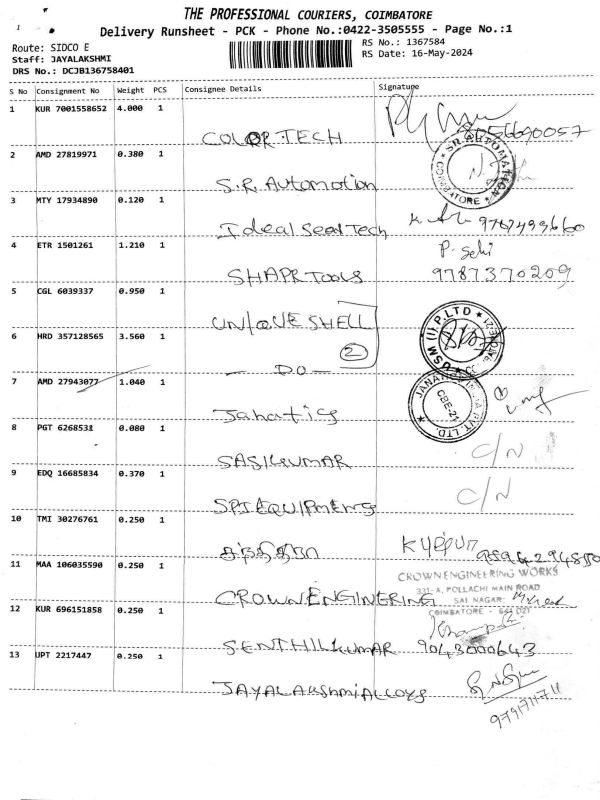 THE PROFESSIONAL COURIERS, COIMBATORE
Delivery Runsheet - PCK - Phone No.:0422-3505555 - Page No.:1
Route: SIDCO E
RS No.: 1367584
Staff: JAYALAKSHMI
RS Date: 16-May-2024
DRS No.: DCJB136758401
S No Consignment No Weight PCS Consignee Details Signature
1 KUR 7001558652 4.000 1
COLORTECH 8056690057
2 AMD 27819971 0.380 1
S.R. AUTOMATION COIMBATORE
S.R. Automation
3 MTY 17934890 0.120 1
Ideal Seal Tech
4 ETR 1501261 1.210 1
SHAPR TOOLS 9787370209
5 CGL 6039337 0.950 1
UNIQUE SHELL
2
6 HRD 357128565 3.560 1
USM (I) P.LTD
- DO -
7 AMD 27943077 1.040 1
CBE-21 PVT. LTD.
8 PGT 6268531 0.080 1
C/N
SASIKUMAR
9 EDQ 16685834 0.370 1
C/N
SPI EQUIPMENTS
10 TMI 30276761 0.250 1
11 MAA 106035590 0.250 1
CROWN ENGINEERING WORKS
331-A, POLLACHI MAIN ROAD
SAI NAGAR
CROWN ENGINERING
COIMBATORE - 641 021
12 KUR 696151858 0.250 1
SENTHILKUMAR 9043000643
13 UPT 2217447 0.250 1
JAYALAKSHMI ALLOYS